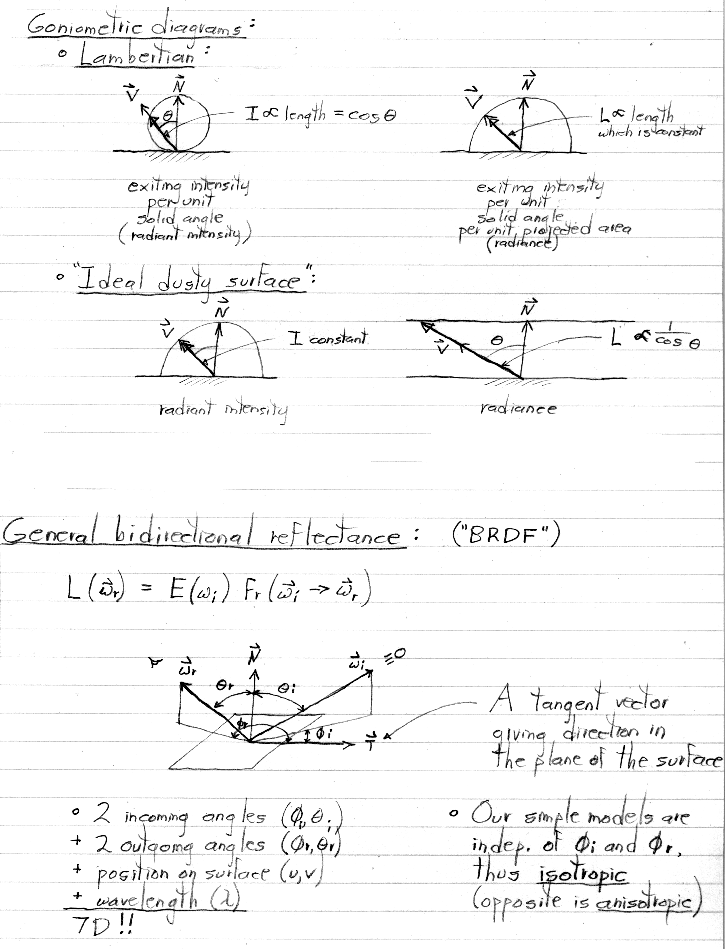 Goniometric diagrams:
• Lambertian:
V⃗ N⃗ θ I ∝ length = cosθ
V⃗ N⃗ L ∝ length
which is constant
exiting intensity
per unit
solid angle
(radiant intensity)
exiting intensity
per unit
solid angle
per unit projected area
(radiance)
• "Ideal dusty surface":
V⃗ N⃗ I constant
V⃗ N⃗ θ L ∝ 1/cos θ
radiant intensity
radiance
General bidirectional reflectance: ("BRDF")
L(ω⃗r) = E(ωi) Fr(ω⃗i → ω⃗r)
ω⃗r N⃗ ω⃗i
θr θi
ϕr ϕi T⃗
A tangent vector
giving direction in
the plane of the surface
• 2 incoming angles (ϕi, θi)
+ 2 outgoing angles (ϕr, θr)
+ position on surface (u,v)
+ wavelength (λ)
7D!!
• Our simple models are
indep. of ϕi and ϕr,
thus isotropic
(opposite is anisotropic)